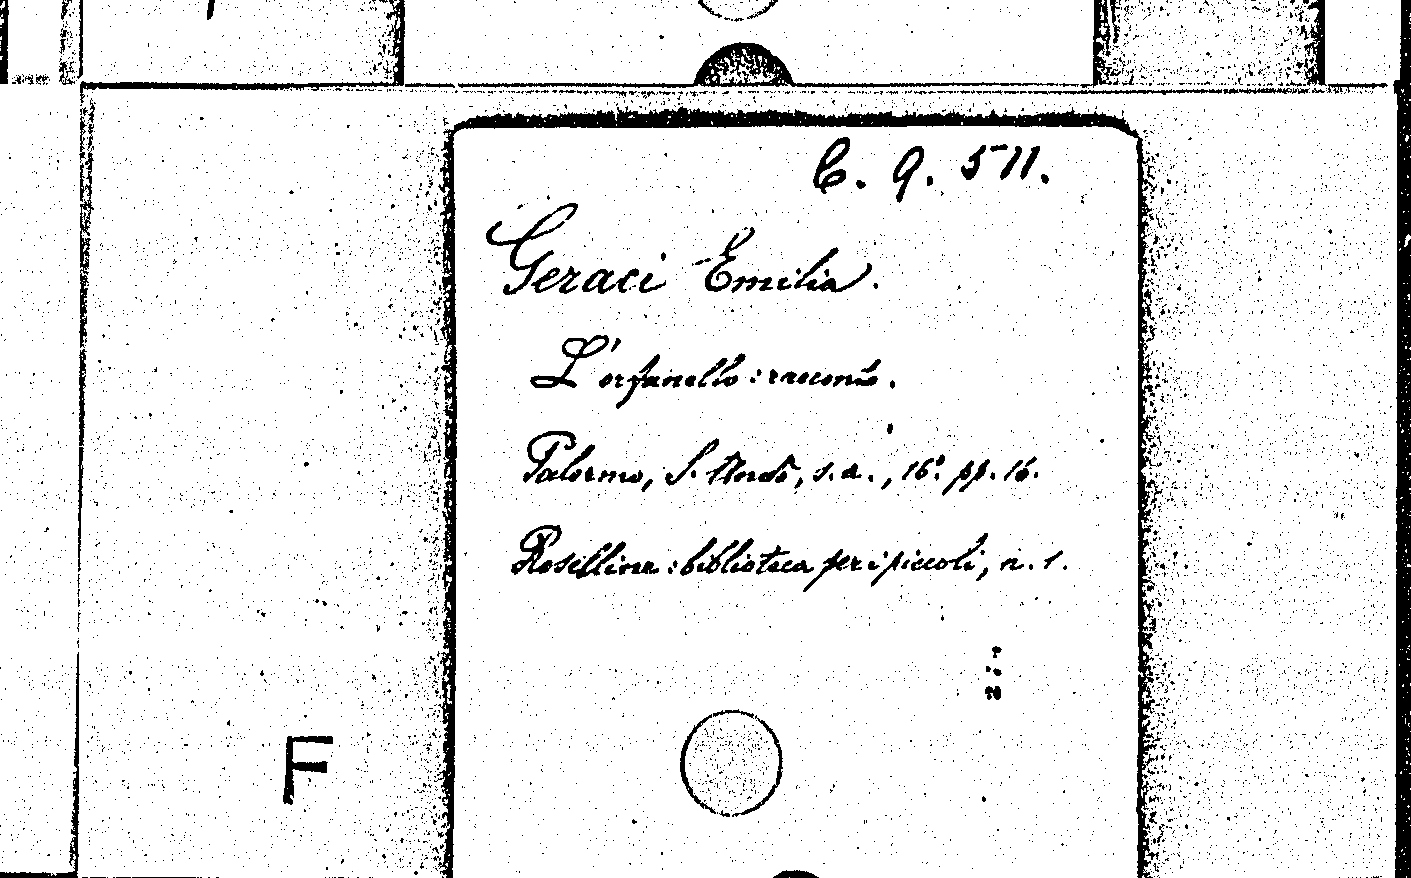 C. 9. 511.
Geraci Emilia.
L'orfanello: racconto.
Palermo, S. Andò, s.a., 16° pp. 16.
Roselline: biblioteca per i piccoli, n. 1.
F